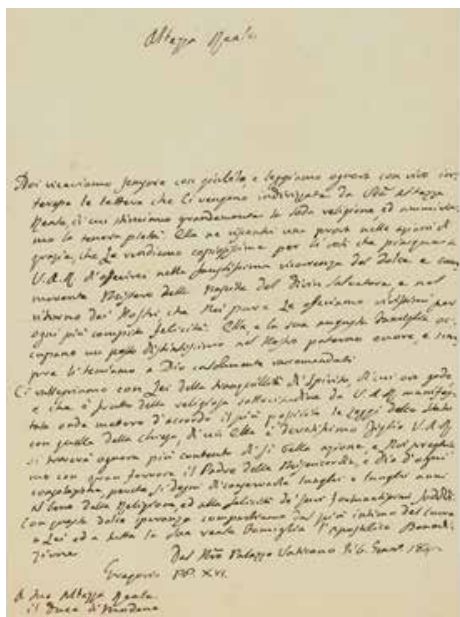 Altezza Reale
Noi riceviamo sempre con giubilo, e leggiamo ognora con vivo in-
teresse le lettere che Ci vengono indirizzate da Vra Altezza
Reale, di cui stimiamo grandemente la soda religione, ed ammiria-
mo la tenera pietà. Ella ne riscontri una prova nelle azioni di
grazie, che Le rendiamo copiosissime per li voti che piacque a
V.A.R. d'offerirci nella faustissima ricorrenza del dolce e com-
movente Mistero della Nascita del Divin Salvatore, e nel
ritorno dei Nostri che Noi pure Le offeriamo vivissimi per
ogni più compiuta felicità. Ella, e la sua augusta Famiglia oc-
cupano un posto distintissimo nel Nostro paterno cuore, e sem-
pre li teniamo a Dio caldamente raccomandati.
Ci rallegriamo con Lei della tranquillità di Spirito, di cui ora gode,
e che è frutto della religiosa sollecitudine da V.A.R. manifes-
tata onde mettere d'accordo il più possibile le Leggi dello Stato
con quelle della Chiesa, di cui Ella è devotissimo Figlio. V.A.R.
si troverà ognora più contento di sì bella azione, e Noi preghia-
mo con gran fervore il Padre delle Misericordie, e Dio d'ogni
consolazione, perché si degni di conservarLa lunghi e lunghi anni
al bene della Religione, ed alla felicità de' suoi fortunatissimi sudditi.
Con questa dolce speranza compartiamo dal più intimo del cuore
a Lei ed a tutta la Sua reale Famiglia l'Apostolica Benedi-
zione.
Dal Nro Palazzo Vaticano li 6. Genn.
Gregorius PP. XVI.
A Sua Altezza Reale
il Duca di Modena